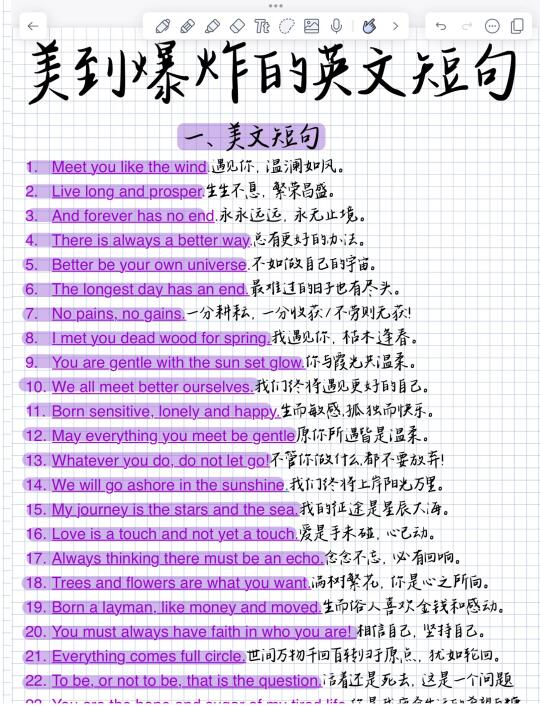 美到爆炸的英文短句
一、美文短句
1. Meet you like the wind.遇见你, 温澜如风。
2. Live long and prosper.生生不息, 繁荣昌盛。
3. And forever has no end.永永远远, 永无止境。
4. There is always a better way.总有更好的办法。
5. Better be your own universe.不如做自己的宇宙。
6. The longest day has an end.最难过的日子也有尽头。
7. No pains, no gains.一分耕耘, 一分收获/不劳则无获!
8. I met you dead wood for spring.我遇见你, 枯木逢春。
9. You are gentle with the sun set glow.你与霞光共温柔。
10. We all meet better ourselves.我们终将遇见更好的自己。
11. Born sensitive, lonely and happy.生而敏感,孤独而快乐。
12. May everything you meet be gentle原你所遇皆是温柔。
13. Whatever you do, do not let go!不管你做什么,都不要放弃!
14. We will go ashore in the sunshine.我们终将上岸阳光万里。
15. My journey is the stars and the sea.我的征途是星辰大海。
16. Love is a touch and not yet a touch.爱是手未碰, 心已动。
17. Always thinking there must be an echo.念念不忘, 必有回响。
18. Trees and flowers are what you want.满树繁花, 你是心之所向。
19. Born a layman, like money and moved.生而俗人喜欢金钱和感动。
20. You must always have faith in who you are! 相信自己, 坚持自己。
21. Everything comes full circle.世间万物千回百转归于原点, 犹如轮回。
22. To be, or not to be, that is the question.活着还是死去, 这是一个问题